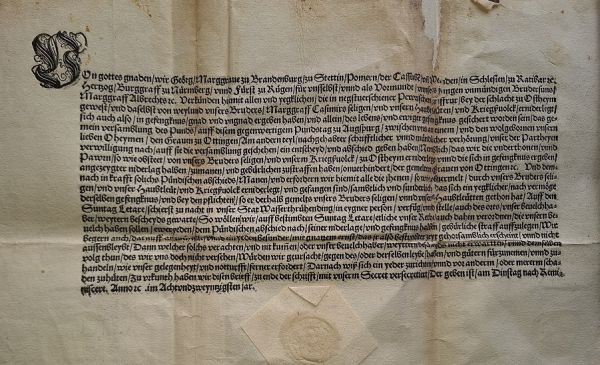 Von gottes gnaden/ wir Georg/ Marggraue zu Brandenburg/ zu Stettin/ Pomern/ der Cassuben vnd Wenden/ in Schlesien/ zu Ratibar ꝛc.
Hertzog/ Burggraff zu Nürmberg/ vnnd Fürst zu Rügen/ für vnsselbst/ vnnd als Vormunde vnsers jungen vnmündigen Brudersuns/
Marggraff Albrechts ꝛc. Verkünden hiemit allen vnd yegklichen/ die in negstuerschiner Pewrischen auffrur/ bey der schlacht zu Ostheym
gewest/ vnd daselbst von weylund vnsers Bruders Marggraff Casimiro seligen/ vnd vnsern Haubtleüten/ vnd Kriegßuolck/ ernderlegt/
sich auch also/ in gefengknus/ gnad vnd vngnad ergeben haben/ vnd allein/ des lebens/ vnd ewiger gefengknus gesichert worden sein/ das
gemein versamlung des Punds/ auff disem gegenwertigem Pundstag zu Augspurg/ zwischen vns an einem/ vnd den wolgebornen vnsern
lieben Oheymen/ den Grauen zu Ottingen/ Am andern teyl/ nachgehabter schrifftlicher vnd mündtlicher verhörung/ vnd der Partheyen
verwilligung nach/ jnnhalt sie der versamlung geschehen/ ein entscheyd/ vnd abschied geben haben/ das wir die vnderthonen/ vnd
Pawrn/ so wie obsteet/ von vnsers Bruders seligen/ vnd vnserm Kriegßuolck/ zu Ostheym ernderlegt/ vnd die sich in gefengknus ergeben/
angezeygter niderlag halben/ zumanen/ vnd gebürlichen zustraffen haben/ vnuerhindert/ der gemelten Grauen von Ottingen ꝛc. Vnd dem-
nach in krafft solichs Pündischen abschieds/ Manen/ vnd erfordern wir hiemit alle die jhenen/ so wie obgemelt/ durch vnsers Bruders seli-
gen/ vnd vnser Haubtleüt/ vnd Kriegßuolck ernderlegt/ vnd gefangen sind/ sambtlich vnd sunderlich/ das sich ein yegklicher/ nach vermöge
derselben gefengknus/ vnd bey den pflichten/ so er deshalb gemelts vnsers Bruders seligen/ vnnd vnsern Haubtleüten gethon hat/ Auff den
Suntag Letare/ schierst zu nacht in vnser Stat Wassertrühending/ in eygner person/ verfüg vnd stelle/ auch des orts/ vnser beuelchha-
ber/ weyters bescheyds gewarte/ So wöllen wir/ auff bestimbten Suntag Letare/ etliche vnser Rethe auch dahin verordnen/ die vnsern be-
uelch haben sollen/ ewreyeden/ dem Pündischen abschied nach/ seiner niderlage/ vnd gefengknus halben/ gebürliche straff auffzulegen/ Wir
begern auch/
aussenbleybt/ Dann welcher solchs verachten/
volg thun/ des wir vns doch nicht versehen/ Würden wir geursacht/ gegen des/ oder derselben leyb/ haben/ vnnd gütern fürzunemen/ vnnd zu-
handeln/ wie vnser gelegenheyt/ vnd notturfft/ ferner erfordert/ Darnach wiß sich ein yeder zurichten/ vnnd vor anderm/ oder merern scha-
den zuhüten/ Zu vrkund haben wir disen brieff/ zu ende der schrifft/ mit vnserm Secret versecretirt/ Der geben ist/ am Dinstag nach Remi-
niscere. Anno ꝛc. im Achtvndzweyntzigsten jar.